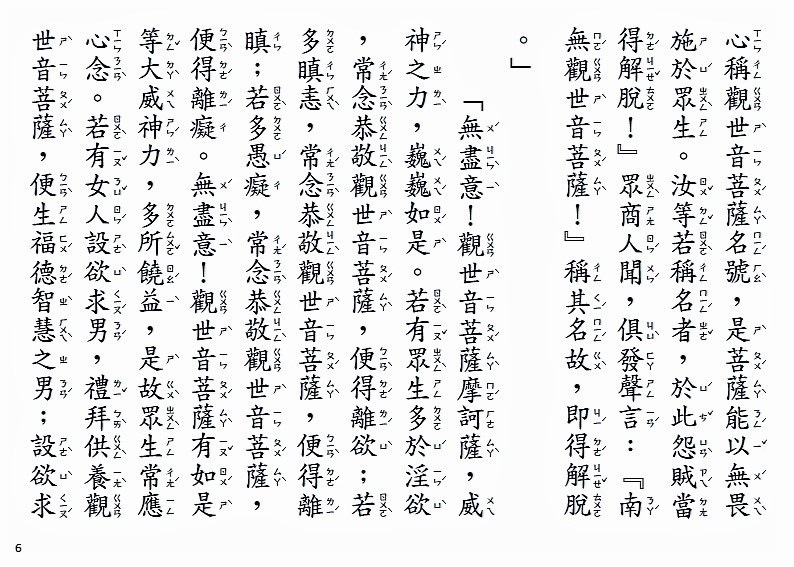 心稱觀世音菩薩名號，是菩薩能以無畏
施於眾生。汝等若稱名者，於此怨賊當
得解脫！』眾商人聞，俱發聲言：『南
無觀世音菩薩！』稱其名故，即得解脫
。」
「無盡意！觀世音菩薩摩訶薩，威
神之力，巍巍如是。若有眾生多於淫欲
，常念恭敬觀世音菩薩，便得離欲；若
多瞋恚，常念恭敬觀世音菩薩，便得離
瞋；若多愚癡，常念恭敬觀世音菩薩，
便得離癡。無盡意！觀世音菩薩有如是
等大威神力，多所饒益，是故眾生常應
心念。若有女人設欲求男，禮拜供養觀
世音菩薩，便生福德智慧之男；設欲求
6